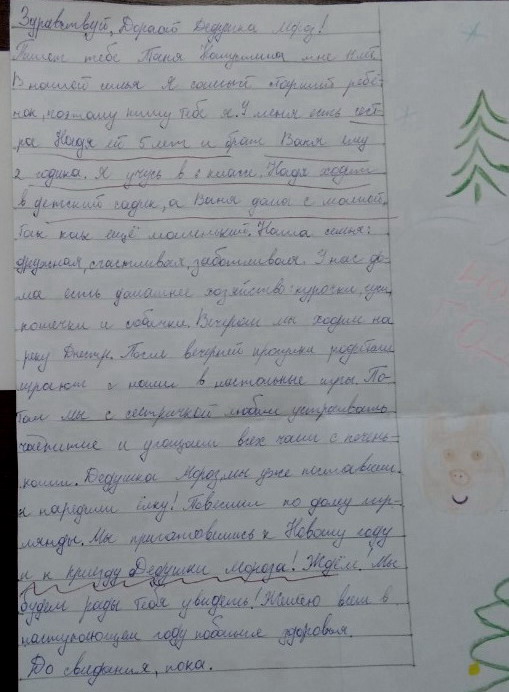 Здравствуй, Дорогой Дедушка Мороз!
Пишет тебе Таня мне лет
В нашей семье Я самый старший ребё-
нок, поэтому пишу тебе я. У меня есть сест-
ра Надя ей 5 лет и брат Ваня ему
2 годика. Я учусь в классе. Надя ходит
в детский садик, а Ваня дома с мамой.
Так как ещё маленький. Наша семья:
дружная, счастливая, заботливая. У нас до-
ма есть домашнее хозяйство: курочки,
кошечки и собачки. Вечером мы ходим на
реку Днестр. После вечерней прогулки родители
играют с нами в настольные игры. По-
том мы с сестричкой любим устраивать
чаепитие и угощаем всех чаем с печень-
ками. Дедушка Мороз мы уже поставили
и нарядили ёлку! Повесили по дому гир-
лянды. Мы приготовились к Новому году
и к приезду Дедушки Мороза! Ждём. Мы
будем рады тебя увидеть! Желаю всем в
наступающем году побольше здоровья.
До свидания, пока.